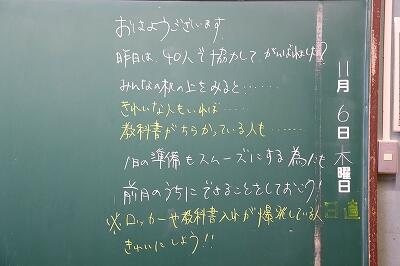 おはようございます!
昨日は、40人で協力して がんばれましたか?
みんなの机の上をみると……
きれいな人もいれば……
教科書がちらかっている人も……
1日の準備もスムーズにする為にも
前日のうちにできることをしておこう!
※ロッカーや教科書入れが爆発している人
きれいにしよう!!
11月6日木曜日
日直